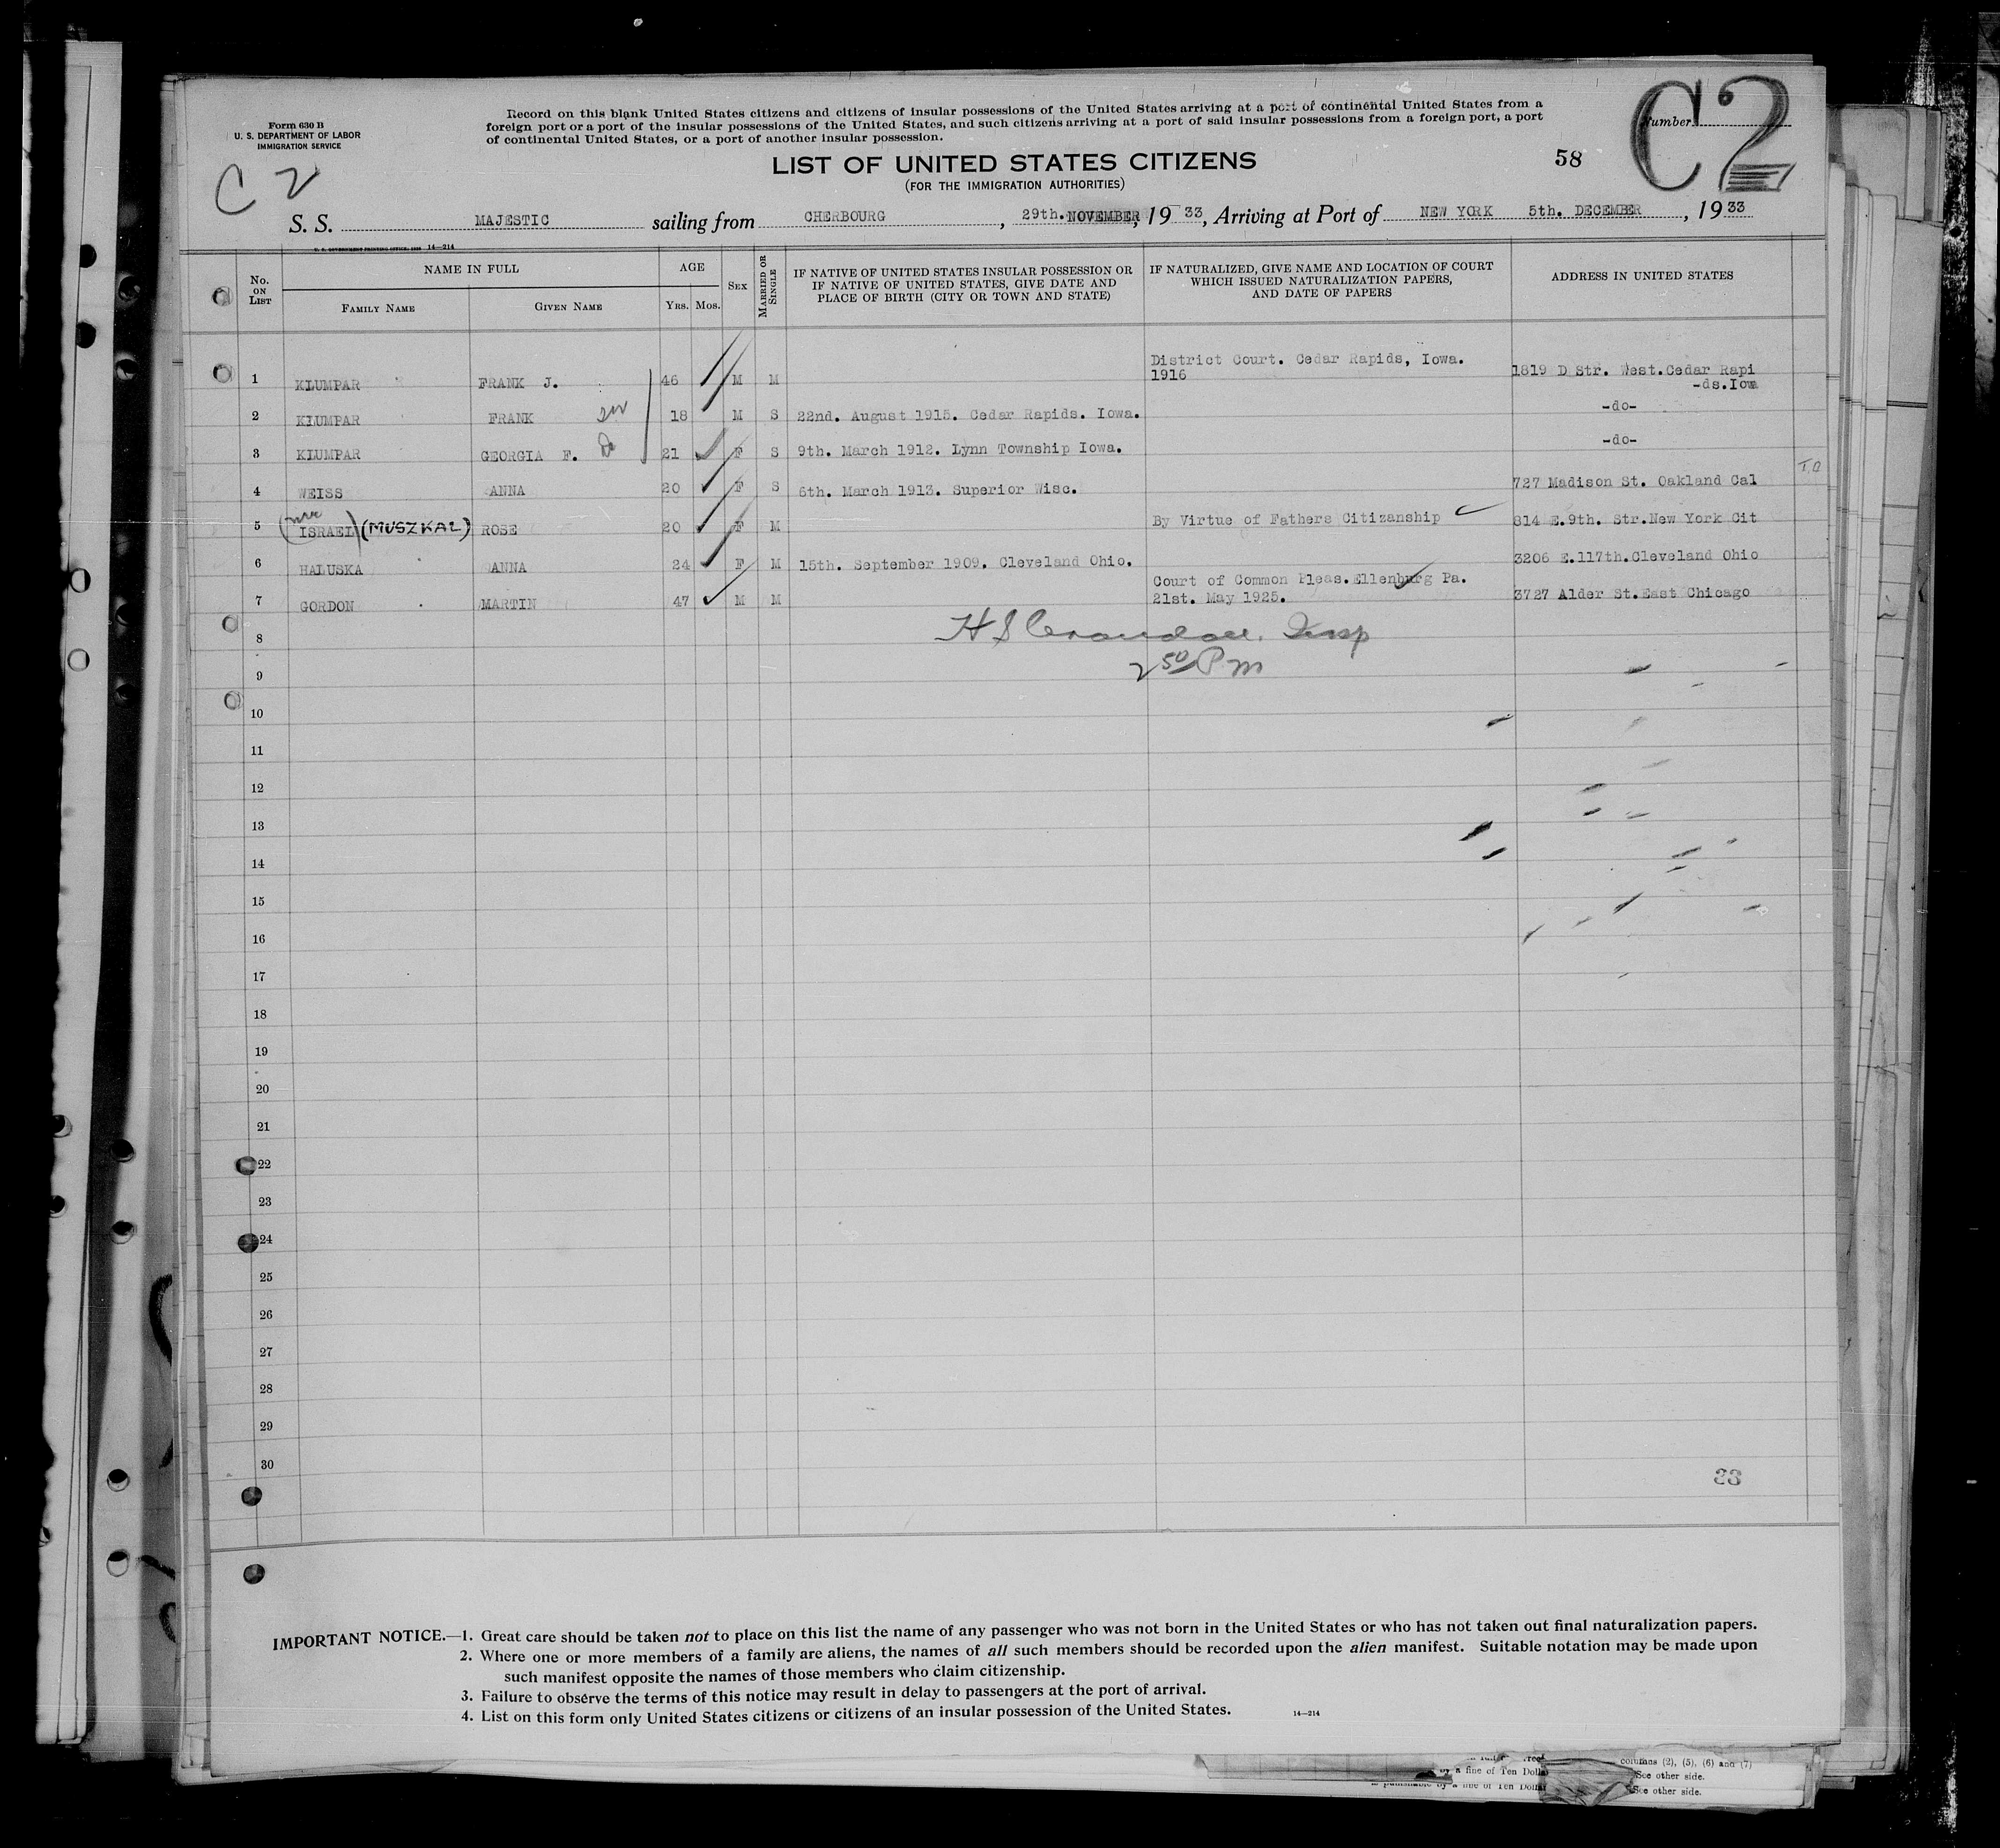 Form 630 B
U. S. DEPARTMENT OF LABOR
IMMIGRATION SERVICE
Record on this blank United States citizens and citizens of insular possessions of the United States arriving at a port of continental United States from a
foreign port or a port of the insular possessions of the United States, and such citizens arriving at a port of said insular possessions from a foreign port, a port
of continental United States, or a port of another insular possession.
C2
Number
58
C2
LIST OF UNITED STATES CITIZENS
(FOR THE IMMIGRATION AUTHORITIES)
S. S. MAJESTIC sailing from CHERBOURG, 29th. NOVEMBER, 19 33, Arriving at Port of NEW YORK 5th. DECEMBER, 19 33
U. S. GOVERNMENT PRINTING OFFICE: 14—214
No. ON LIST NAME IN FULL FAMILY NAME GIVEN NAME AGE YRS. MOS. SEX MARRIED OR SINGLE
IF NATIVE OF UNITED STATES INSULAR POSSESSION OR
IF NATIVE OF UNITED STATES, GIVE DATE AND
PLACE OF BIRTH (CITY OR TOWN AND STATE)
IF NATURALIZED, GIVE NAME AND LOCATION OF COURT
WHICH ISSUED NATURALIZATION PAPERS,
AND DATE OF PAPERS
ADDRESS IN UNITED STATES
1 KLUMPAR FRANK J. 46 M M District Court. Cedar Rapids, Iowa. 1819 D Str. West.Cedar Rapi
1916 -ds.Iow
2 KLUMPAR FRANK 18 M S 22nd. August 1915. Cedar Rapids. Iowa. -do-
3 KLUMPAR GEORGIA F. Do 21 F S 9th. March 1912. Lynn Township Iowa. -do-
4 WEISS ANNA 20 F S 6th. March 1913. Superior Wisc. 727 Madison St. Oakland Cal
5 (nee ISRAEL) (MUSZKAL) ROSE 20 F M By Virtue of Fathers Citizanship 814 E.9th. Str.New York Cit
6 HALUSKA ANNA 24 F M 15th. September 1909. Cleveland Ohio. 3206 E.117th.Cleveland Ohio
7 GORDON MARTIN 47 M M Court of Common Pleas.Ellenburg Pa. 3727 Alder St.East Chicago
21st. May 1925.
8 H S Crandall. Insp
9 2 50 P m
10
11
12
13
14
15
16
17
18
19
20
21
22
23
24
25
26
27
28
29
30
33
IMPORTANT NOTICE.—1. Great care should be taken not to place on this list the name of any passenger who was not born in the United States or who has not taken out final naturalization papers.
2. Where one or more members of a family are aliens, the names of all such members should be recorded upon the alien manifest. Suitable notation may be made upon
such manifest opposite the names of those members who claim citizenship.
3. Failure to observe the terms of this notice may result in delay to passengers at the port of arrival.
4. List on this form only United States citizens or citizens of an insular possession of the United States.
14—214
columns (2), (5), (6) and (7)
a fine of Ten Dolla
See other side.
a fine of Ten Dolla
See other side.